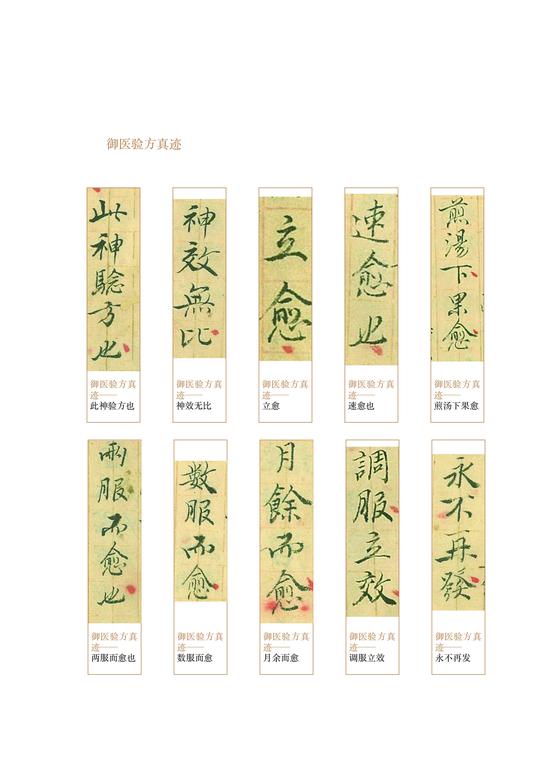 御医验方真迹
此神驗方也
神效無比
立愈
速愈也
煎湯下果愈
御医验方真
迹——
此神验方也
御医验方真
迹——
神效无比
御医验方真
迹——
立愈
御医验方真
迹——
速愈也
御医验方真
迹——
煎汤下果愈
兩服而愈也
数服而愈
月餘而愈
調服立效
永不再發
御医验方真
迹——
两服而愈也
御医验方真
迹——
数服而愈
御医验方真
迹——
月余而愈
御医验方真
迹——
调服立效
御医验方真
迹——
永不再发